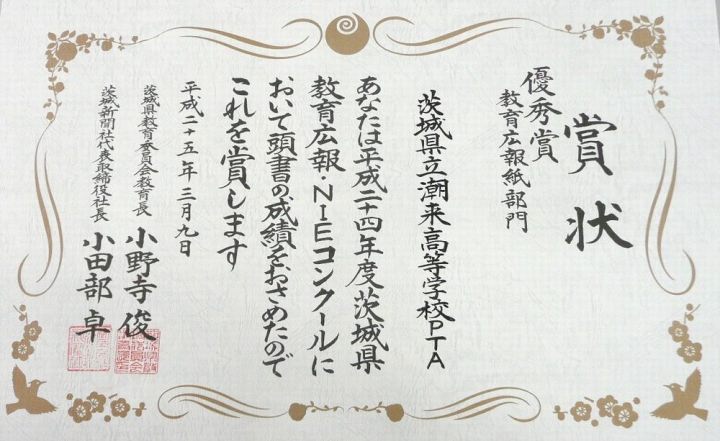 賞状
優秀賞
教育広報紙部門
茨城県立潮来高等学校PTA
あなたは平成二十四年度茨城県
教育広報・NIEコンクールに
おいて頭書の成績をおさめたので
これを賞します
平成二十五年三月九日
茨城県教育委員会教育長 小野寺俊
茨城新聞社代表取締役社長 小田部卓